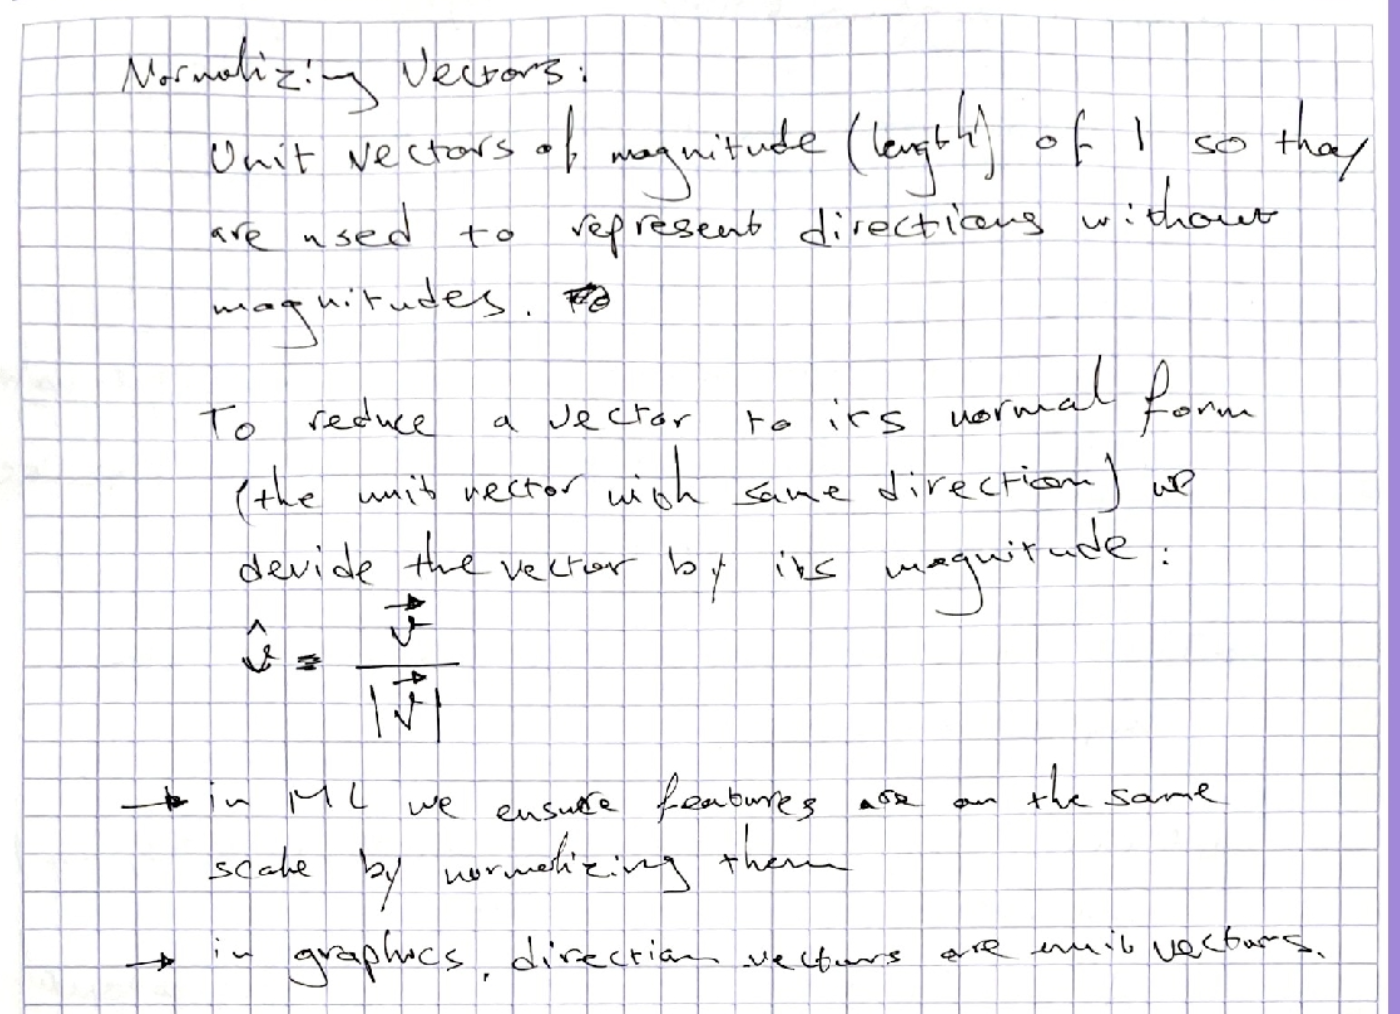 Normalizing Vectors:
Unit vectors of magnitude (length) of 1 so they
are used to represent directions without
magnitudes.
To reduce a vector to its normal form
(the unit vector with same direction) we
devide the vector by its magnitude:
v̂ = v⃗ / |v⃗|
→ in ML we ensure features are on the same
scale by normalizing them
→ in graphics, direction vectors are unit vectors.